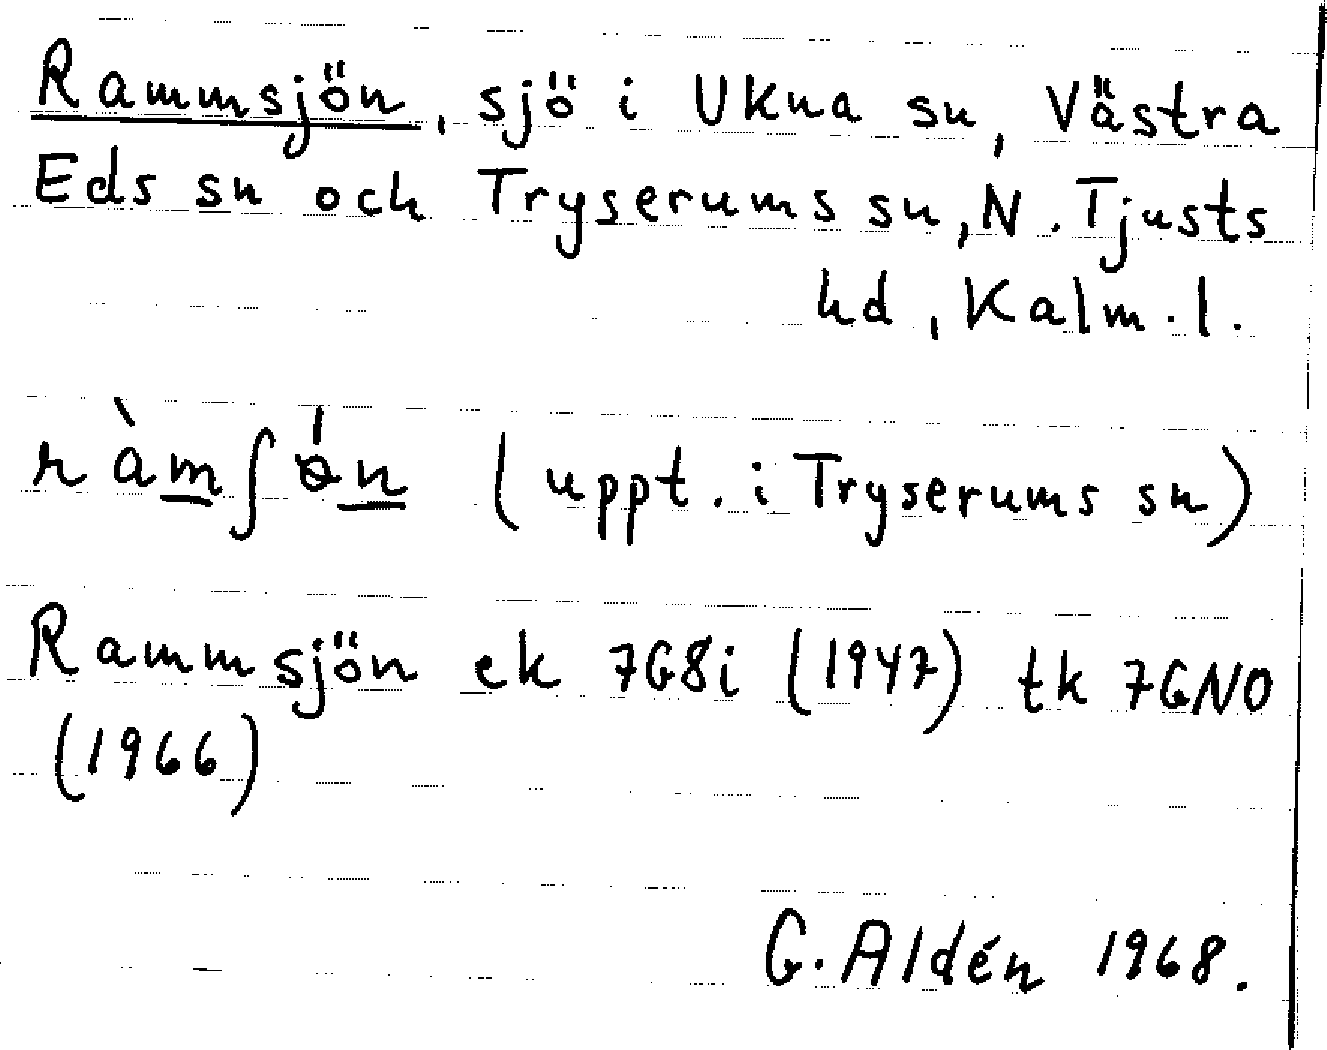 Rammsjön, sjö i Ukna sn, Västra
Eds sn och Tryserums sn, N. Tjusts
hd, Kalm. l.
ràmʃɵ́n (uppt. i Tryserums sn)
Rammsjön ek 7G8i (1947) tk 7GNO
(1966)
G. Aldén 1968.